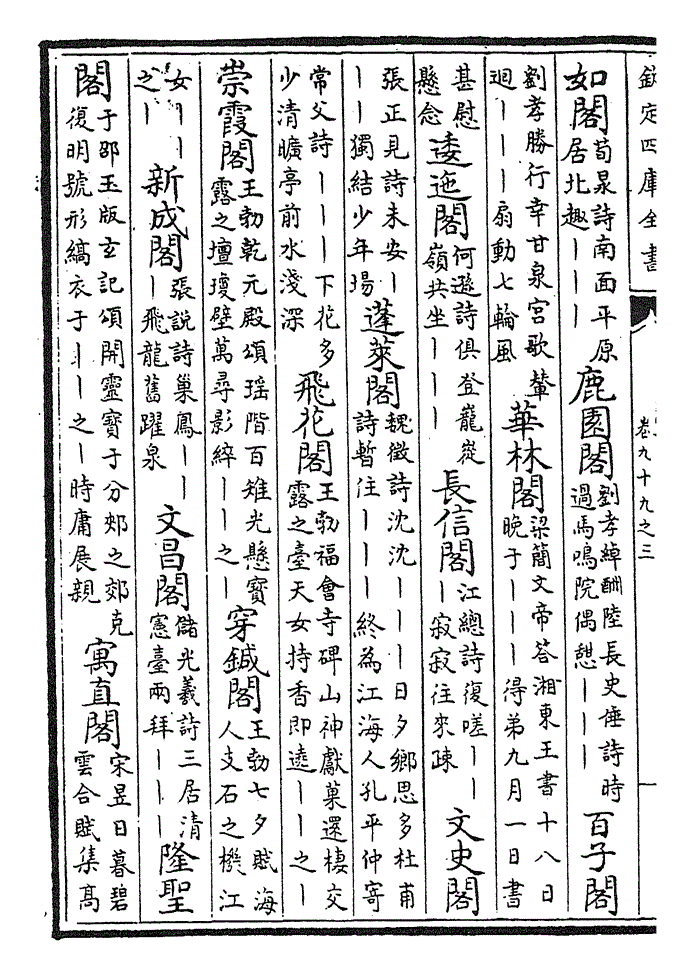 欽定四庫全書 卷九十九之三
如閣 荀杲詩南面平原居北趣丨丨丨 鹿園閣 劉孝綽酬陸長史倕詩時過馬鳴院偶憇丨丨丨 百子閣
劉孝勝行幸甘泉宫歌輦迴丨丨丨扇動七輪風 華林閣 梁簡文帝答湘東王書十八日晚于丨丨丨得弟九月一日書
甚慰懸念 逶迤閣 何遜詩俱登巃嵸嶺共坐丨丨丨 長信閣 江總詩復嗟丨丨丨寂寂往來疎 文史閣
張正見詩未安丨丨丨獨結少年場 蓬萊閣 魏徵詩沈沈丨丨丨日夕鄉思多杜甫詩暫住丨丨丨終為江海人孔平仲寄
常父詩丨丨丨下花多少清曠亭前水淺深 飛花閣 王勃福會寺碑山神獻菓還棲交露之臺天女持香即遶丨丨之丨
崇霞閣 王勃乾元殿頌瑶階百雉光懸寳露之壇瓊壁萬尋影綷丨丨之丨 穿鍼閣 王勃七夕賦海人支石之機江
女丨丨之丨 新成閣 張說詩巢鳳丨丨丨飛龍舊躍泉 文昌閣 儲光羲詩三居清憲臺兩拜丨丨丨 隆聖
閣 于邵玉版玄記頌開靈寳于分郊之郊克復明號形縞衣于丨丨之丨時庸展親 寓直閣 宋昱日暮碧雲合賦集髙